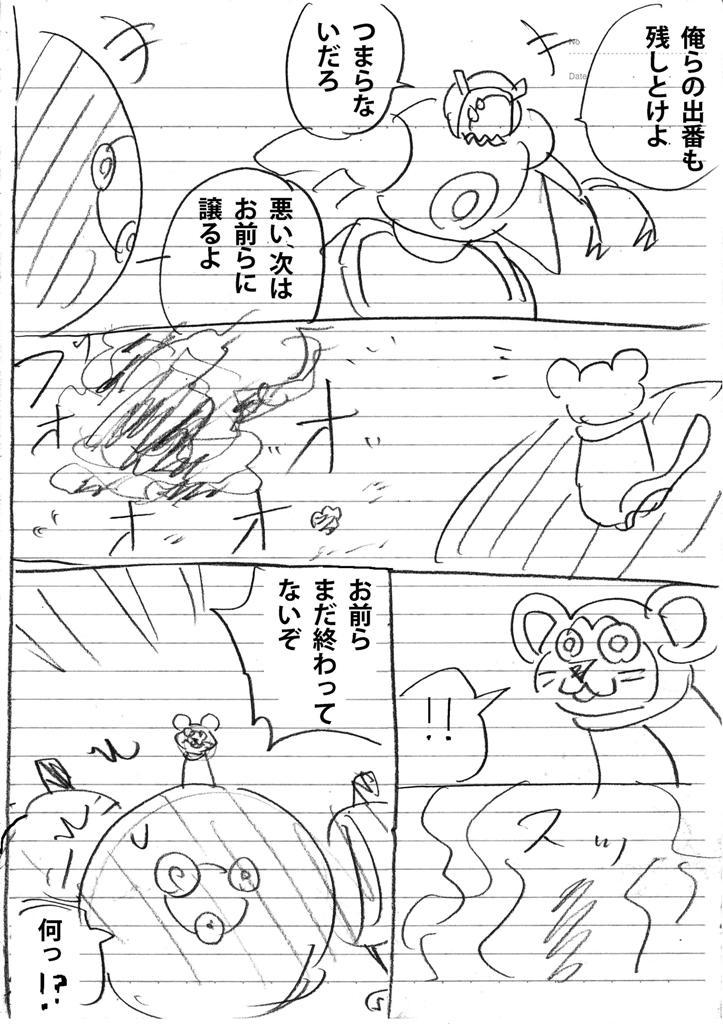 俺らの出番も
残しとけよ
つまらな
いだろ
悪い、次は
お前らに
譲るよ
No
Date
ブオオオオ
!!
スッ
お前ら
まだ終わって
ないぞ
何っ!?